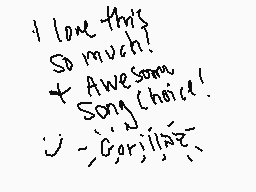 I love this
so much!
+ Awesome
song choice!
U - Gorillaz -